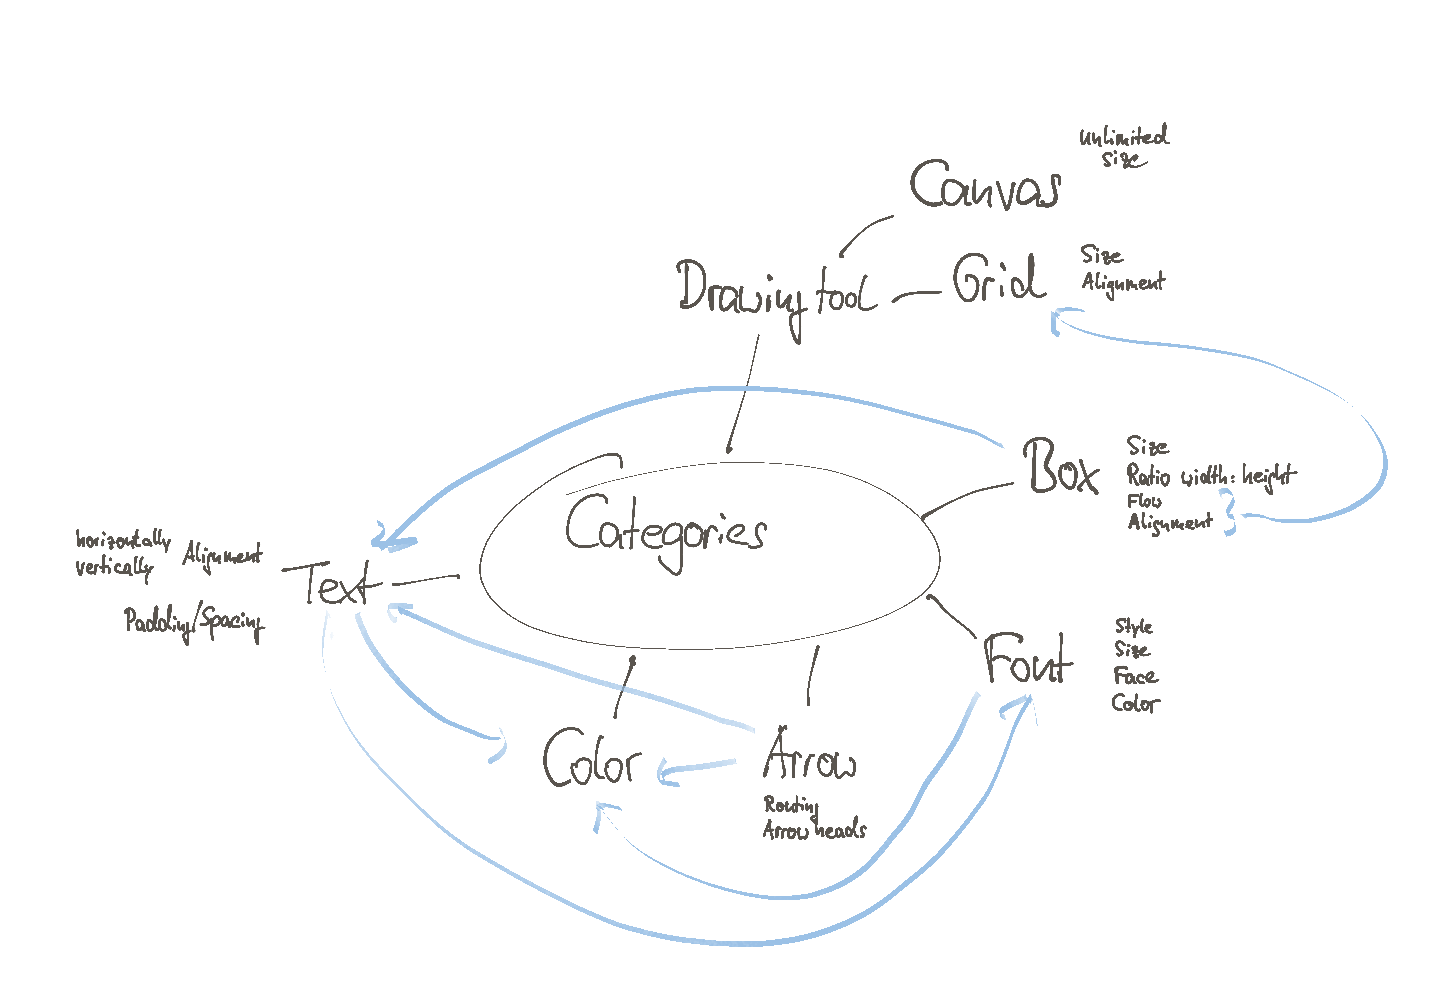 unlimited
size
Canvas
Drawing tool
Grid
Size
Alignment
Box
Size
Ratio width:height
Flow
Alignment
Categories
horizontally
vertically
Alignment
Text
Padding/Spacing
Font
Style
Size
Face
Color
Color
Arrow
Routing
Arrow heads